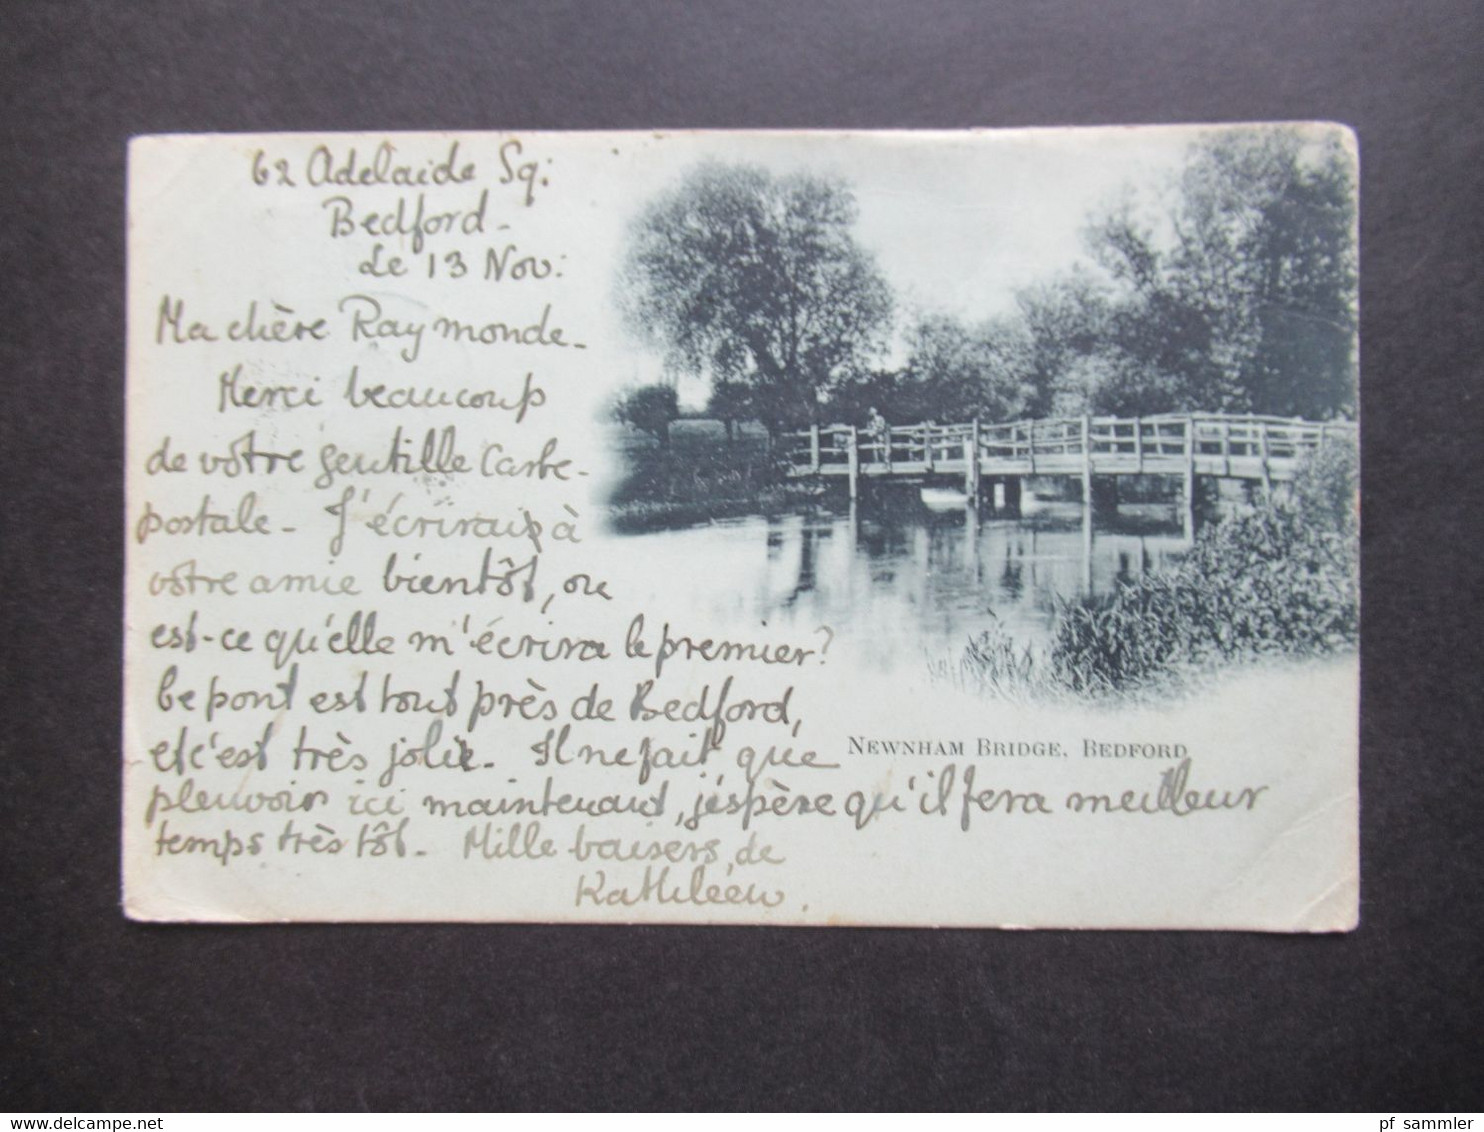 62 Adelaide Sq:
Bedford-
Le 13 Nov:
Ma chère Raymonde-
Merci beaucoup
de votre gentille Carte-
postale- J'écrirais à
votre amie bientôt, ou
est-ce qu'elle m'écrira le premier?
Le pont est tout près de Bedford,
et c'est très jolie. Il ne fait que
NEWNHAM BRIDGE, BEDFORD
pleuvoir ici maintenant, j'espère qu'il fera meilleur
temps très tôt. Mille baisers, de
Kathléen.
www.delcampe.net
pf sammler